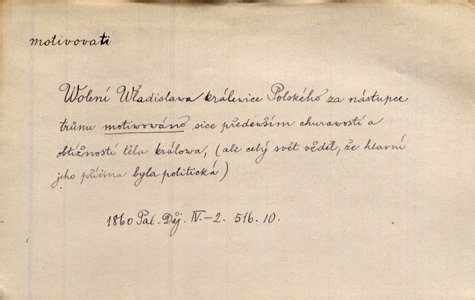 motivovati
Wolení Wladislawa králewice Polského za nástupce
trůnu motiwowáno sice především churawostí a
obtížností těla králowa, (ale celý svět věděl, že hlavní
jeho příčina byla politická)
1860 Pal. Děj. IV-2. 516.10.